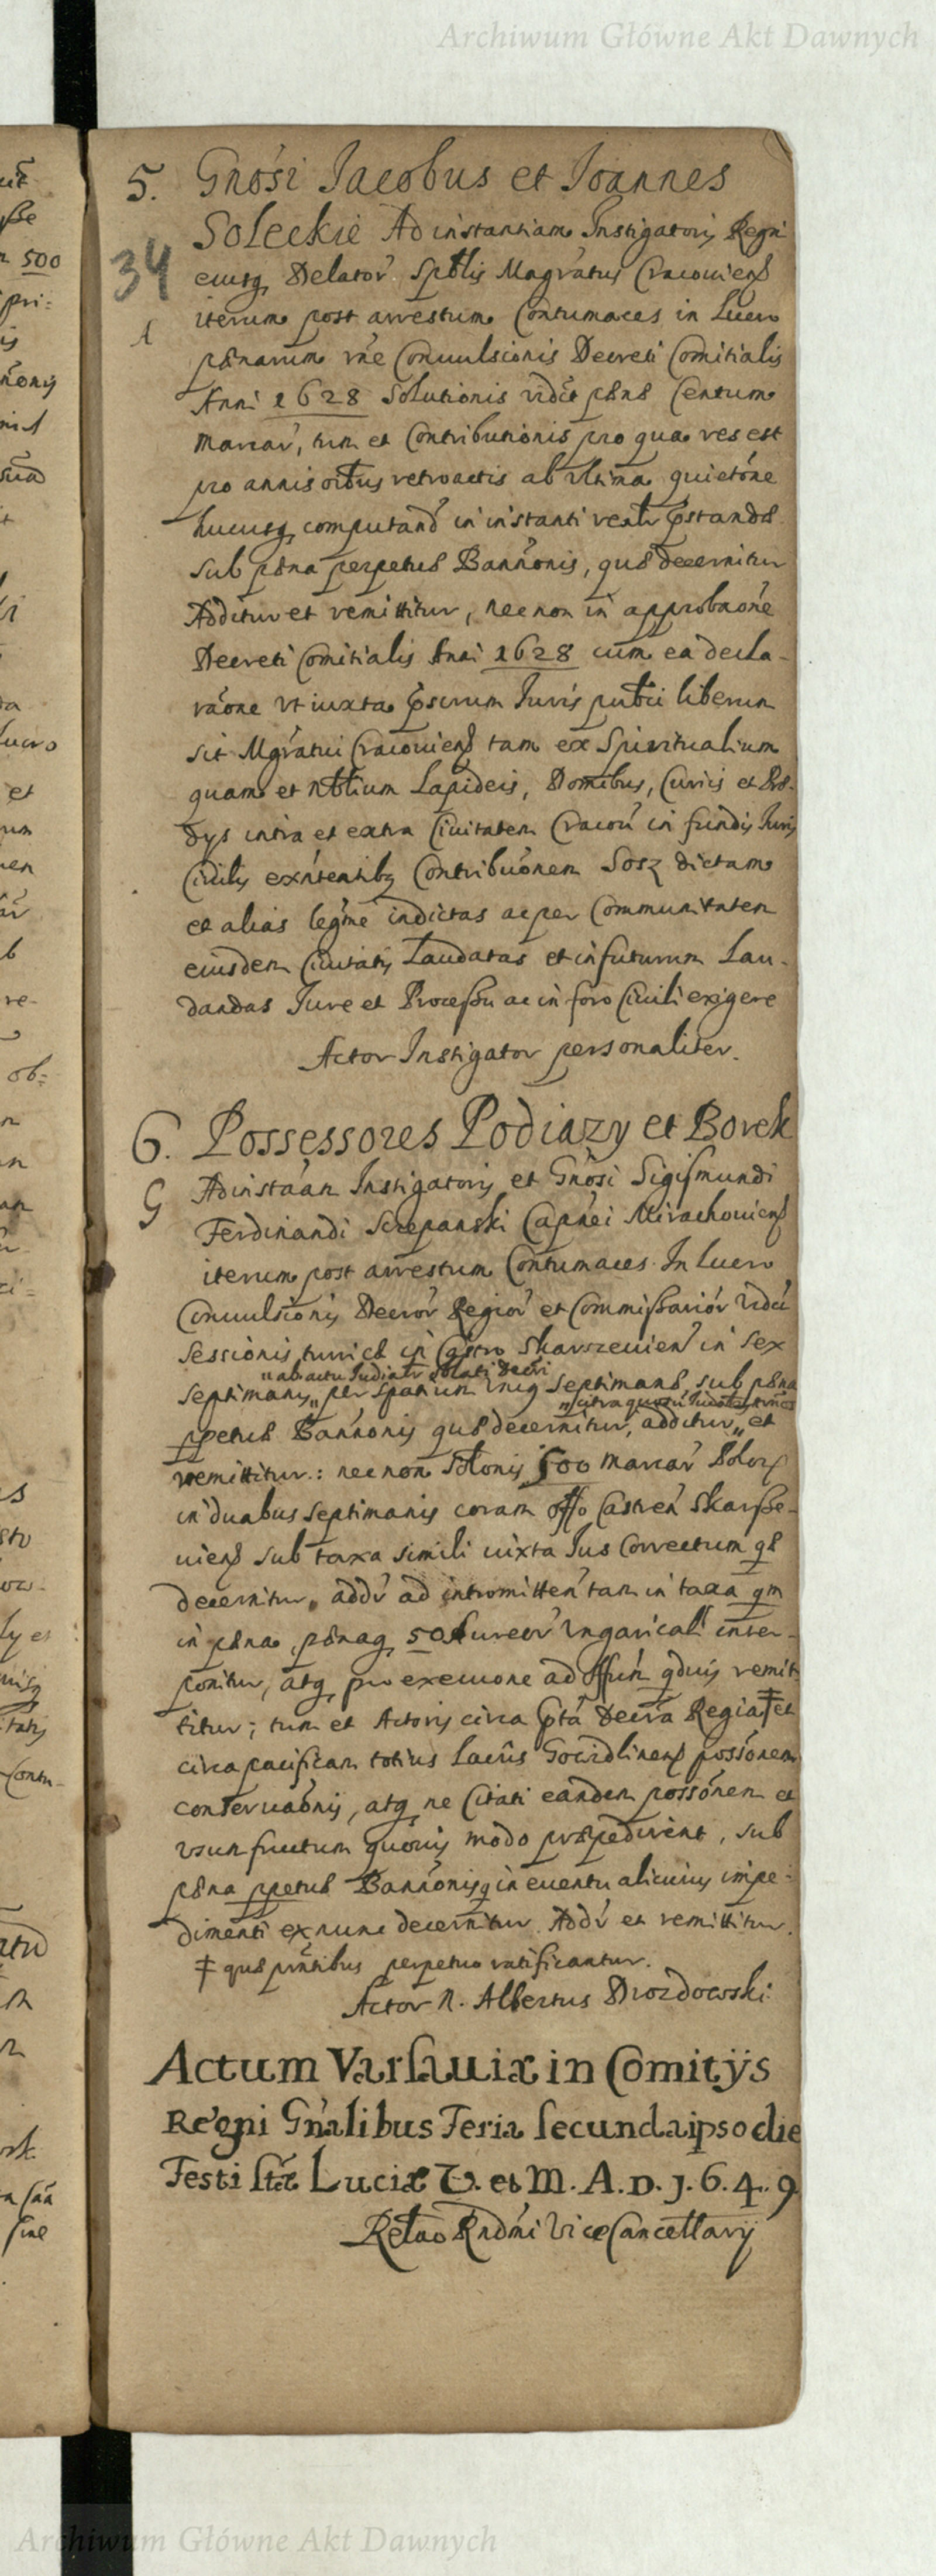 Archiwum Główne Akt Dawnych
5. Gnosi Jacobus et Joannes
Soleckie Ad instantiam Instigatoris Regni
34 eiusq Delator Spblis Magratus Cracouiens
A iterum post arrestum Contumaces in Lucro
pænarum rne Conuulsionis Decreti Comitialis
Anni 1628 Solutionis vidct pænæ Centum
marcar, tum et Contributionis pro qua res est
pro annis oibus retroactis ab vltima quietone
hucusq computand in instanti realr pstandæ
sub pæna perpetuæ Bannonis, quæ decernitur
Additur et remittitur, nec non in approbaone
Decreti Comitialis Anni 1628 cum ea decla-
raone vt iuxta pscrum Juris publci liberum
sit Mgratui Cracouiens tam ex Spiritualium
quam et Nblium Lapideis, Domibus, Curijs et Præ-
dijs intra et extra Ciuitatem Cracou in fundis Juris
Ciuilis exntentibq Contributionem Sosz dictam
et alias legme indictas ac per Communitatem
eiusdem Ciuitatis Laudatas et in futurum Lau-
dandas Jure et Processu ac in foro Ciuili exigere
Actor Instigator personaliter.
6. Possessores Podiazy et Borek
G Ad instaan Instigatoris et Gnosi Sigismundi
Ferdinandi Sczepanski Capnei Mirachouiens
iterum post arrestum Contumaces. In Lucro
Conuulsionis Decror Regior et Commissarior vidct
sessionis turricæ in Castro Skarszeuien in sex
" ab actu Judialr
Septimanis " per spatium vnius Septimanæ sub pæna
ppetuæ Bannonis quæ decernitur, additur " et
remittitur: nec non Soltonis 500 marcar Polor
in duabus septimanis coram offo Castren Skarsze-
uiens sub taxa simili iuxta Jus Correctum qæ
decernitur, addr ad intromitten tam in taxa qm
in pæna, pænaq 50 Aureor Vngarical inter-
ponitur, atq pro execuone ad Offum qduis remit-
titur; tum et Actoris circa pta Decra Regia ‡ et
circa pacificam totius Lacus Gowidlinens possonem
conseruaonis, atq ne Citati eandem possonem et
vsumfructum quouis modo præpedirent, sub
pæna ppetuæ Bannonis q in euentu alicuius impe-
dimenti ex nunc decernitur. Addr et remittitur.
‡ quæ prntibus perpetuo ratificantur.
Actor N. Albertus Drozdowski.
Actum Varsauiæ in Comitijs
Regni Gnalibus Feria secunda ipso die
Festi stæ Luciæ V. et M. A. D. 1.6.4.9
Relao Rndmi Vice Cancellarij
Archiwum Główne Akt Dawnych